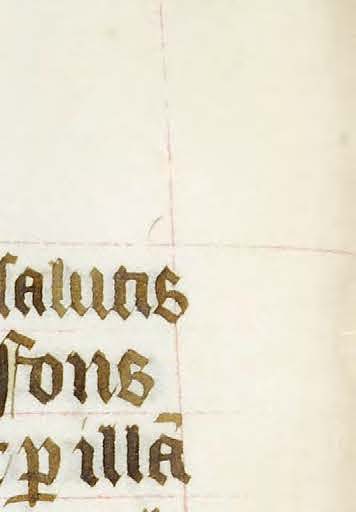 salutis
fons
ꝑ illā